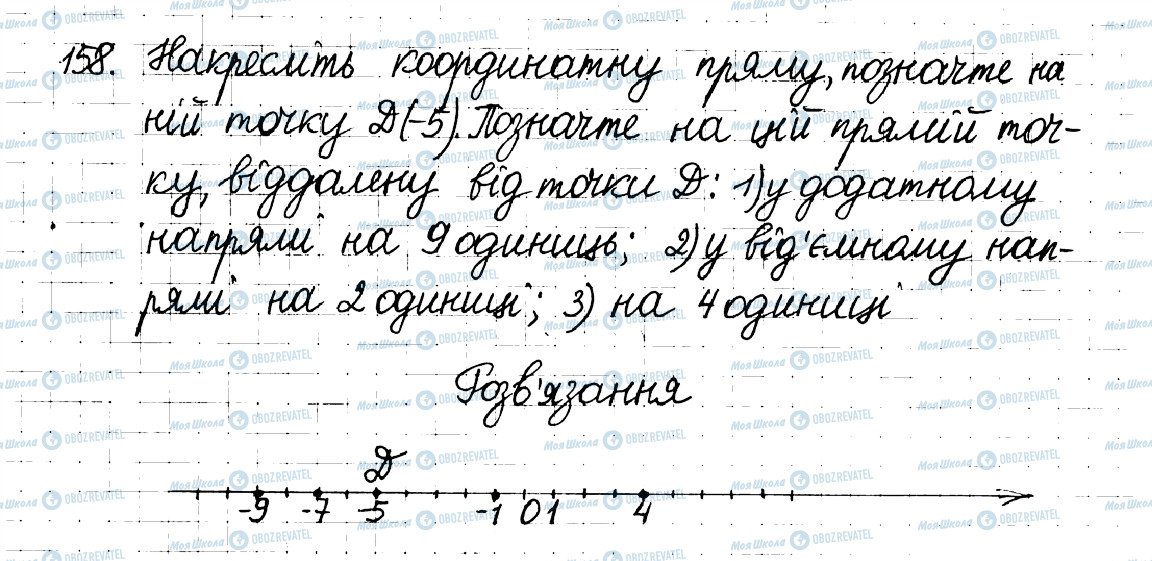 158. Накресліть координатну пряму, позначте на
ній точку D(-5). Позначте на цій прямій точ-
ку, віддалену від точки D: 1) у додатному
напрямі на 9 одиниць; 2) у від'ємному нап-
рямі на 2 одиниці; 3) на 4 одиниці
Розв'язання
D
-9 -7 -5 -1 0 1 4